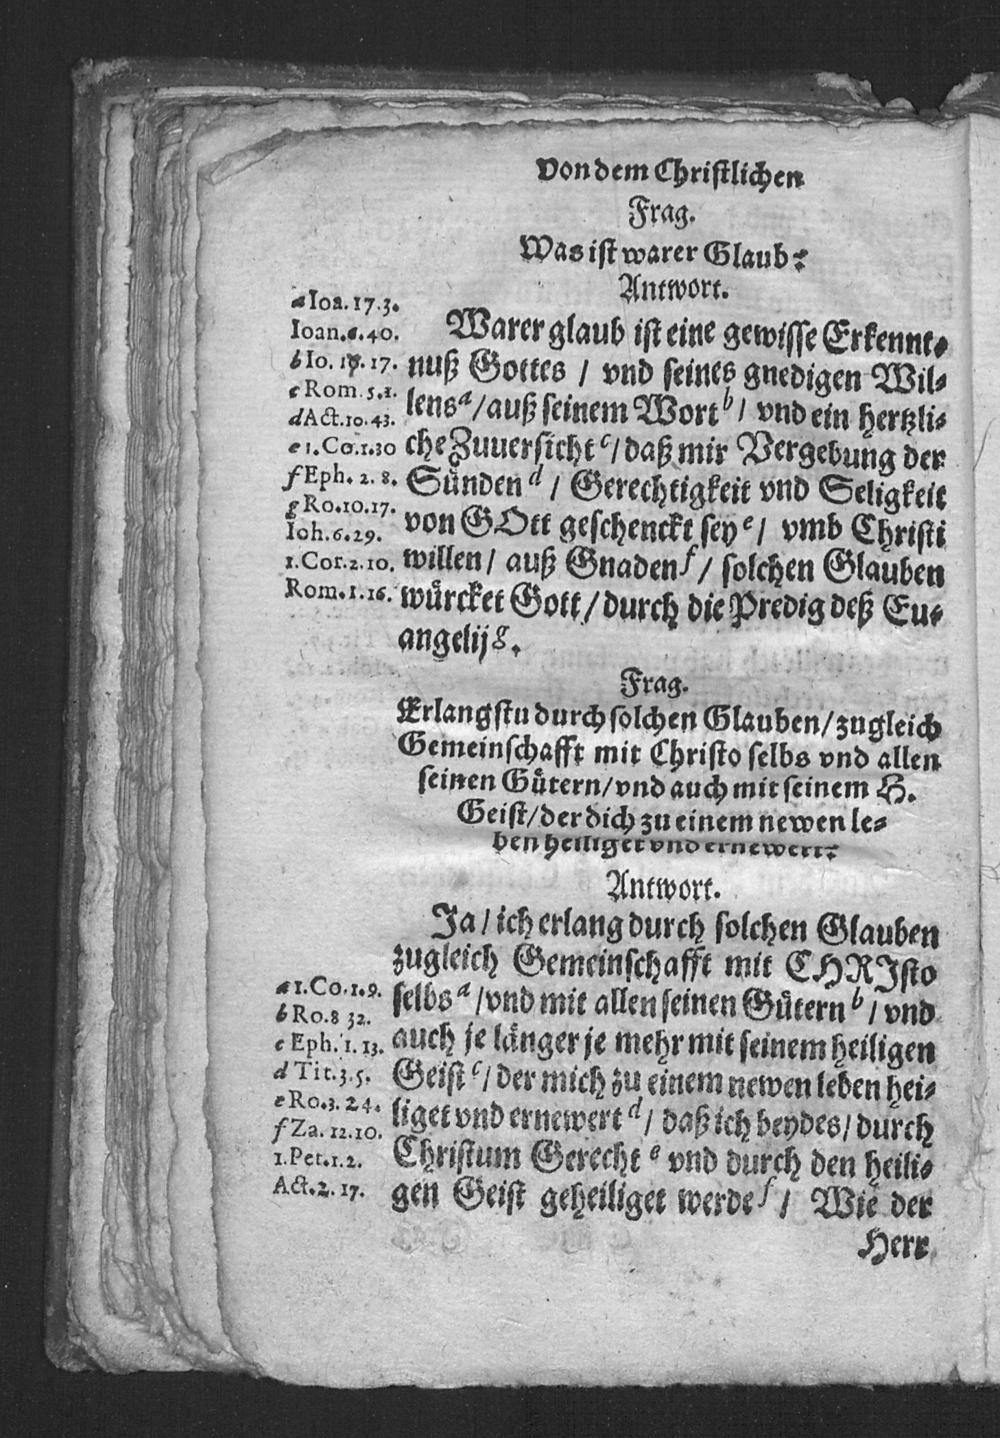 Von dem Christlichen
Frag.
Was ist warer Glaub?
Antwort.
a Ioa. 17.3.
Ioan. 6.40.
b Io. 17. 17.
c Rom. 5.1.
d Act. 10. 43.
e 1. Co. 1.30
f Eph. 2. 8.
g Ro. 10. 17.
Ioh. 6. 29.
1. Cor. 2. 10.
Rom. 1. 16.
Warer glaub ist eine gewisse Erkennt⸗
nuß Gottes / vnd seines gnedigen Wil⸗
lens a / auß seinem Wort b / vnd ein hertzli⸗
che Zuuersicht c / daß mir Vergebung der
Sünden d / Gerechtigkeit vnd Seligkeit
von GOtt geschenckt sey e / vmb Christi
willen / auß Gnaden f / solchen Glauben
würcket Gott / durch die Predig deß Eu⸗
angelij g.
Frag.
Erlangstu durch solchen Glauben / zugleich
Gemeinschafft mit Christo selbs vnd allen
seinen Gütern / vnd auch mit seinem H.
Geist / der dich zu einem newen le⸗
ben heiliget vnd ernewert?
Antwort.
Ja / ich erlang durch solchen Glauben
zugleich Gemeinschafft mit CHRJsto
selbs a / vnd mit allen seinen Gütern b / vnd
auch je länger je mehr mit seinem heiligen
Geist c / der mich zu einem newen leben hei⸗
liget vnd ernewert d / daß ich beydes / durch
Christum Gerecht e vnd durch den heili⸗
gen Geist geheiliget werde f / Wie der
Herr
a 1. Co. 1. 9.
b Ro. 8 32.
c Eph. 1. 13.
d Tit. 3. 5.
e Ro. 3. 24.
f Za. 12. 10.
1. Pet. 1. 2.
Act. 2. 17.